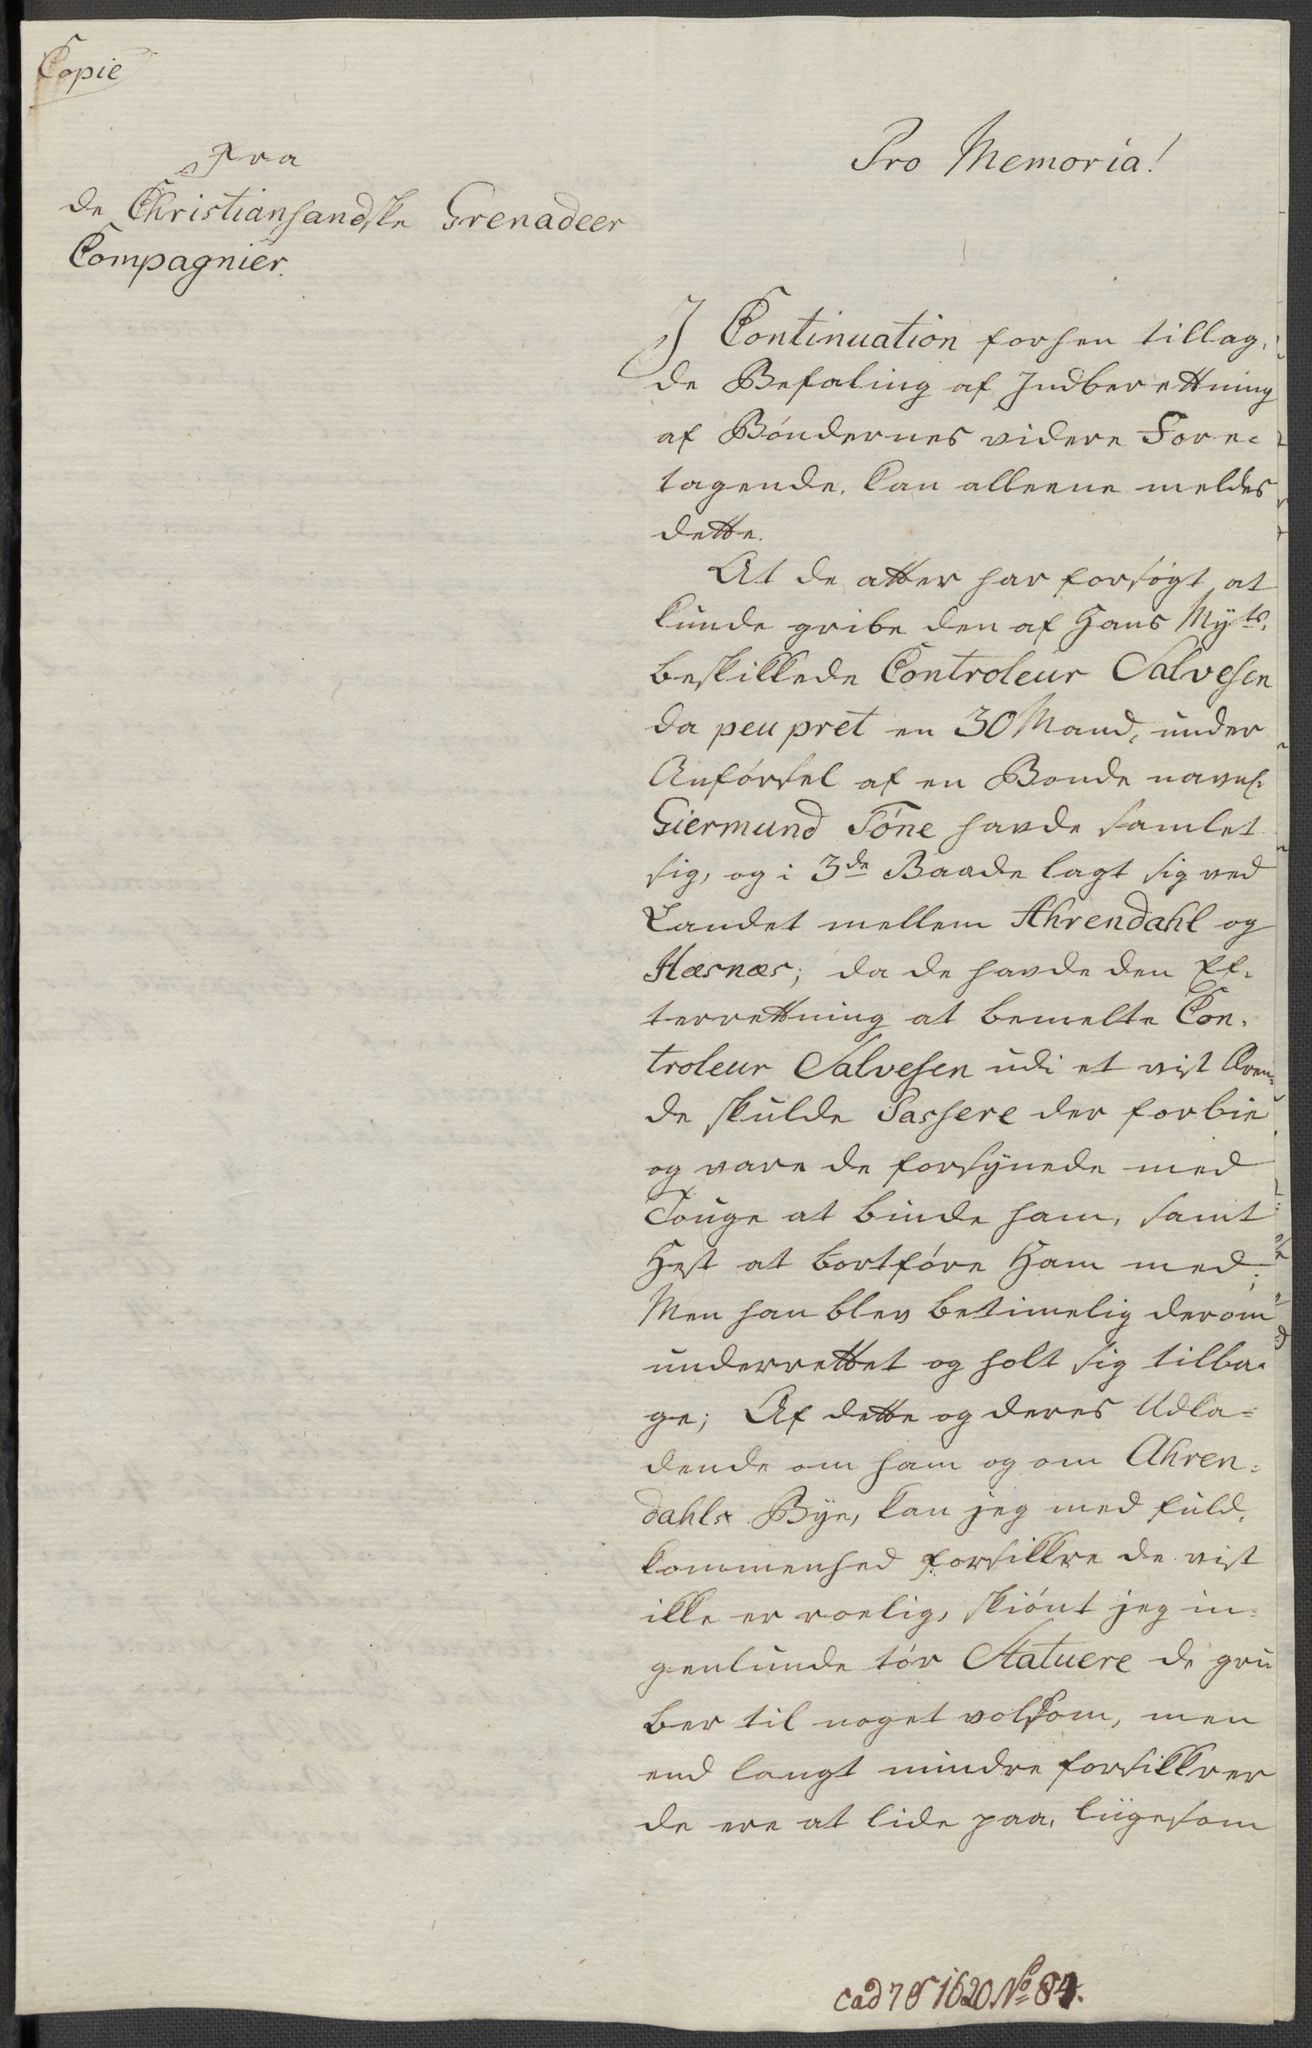 Copie
Fra
de Christiansandske Grenadeer
Compagnier.
Pro Memoria!
J Continuation forhen tillag,
de Befaling af Jndberettning
af Bøndernes videre Fore¬
tagende. kan alleene meldes
dette.
At de atter har forsøgt at
kunde gribe den af Hans Mÿts.
beskikkede Controleur Salvesen
da peu pret en 30 Mand, under
Anførsel af en Bonde navnl.
Giermund Tøne havde samlet
sig, og i 3de Baade lagt sig ved
Landet mellem Ahrendahl og
Hæsnæs; da de havde den Ef¬
terrettning at bemelte Con¬
troleur Salvesen udi et vist Æren¬
de skulde Passere der forbie
og vare de forsÿnede med
Touge at binde ham, samt
Hest at bortføre Ham med;
Men han blev betimelig derom
underrettet og holt sig tilba¬
ge; Af dette og deres Udla¬
dende om ham og om Ahren¬
dahls Bÿe, kan jeg med fuld,
kommenhed forsikkre de vist
ikke er roelig, skiønt jeg in¬
genlunde tør Statuere de gru
ber til noget volsom, men
end langt mindre forsikkrer
de ere at lide paa, liigesom
cad 78 1620 No 84.